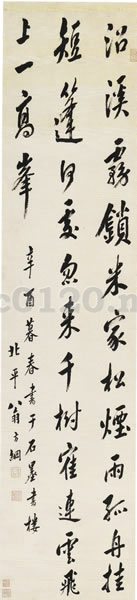 沿溪霧鎖米家松煙雨孤舟挂
短篷何處忽來千樹寉連雲飛
上一高峯
辛酉暮春書于石墨書樓
北平翁方綱